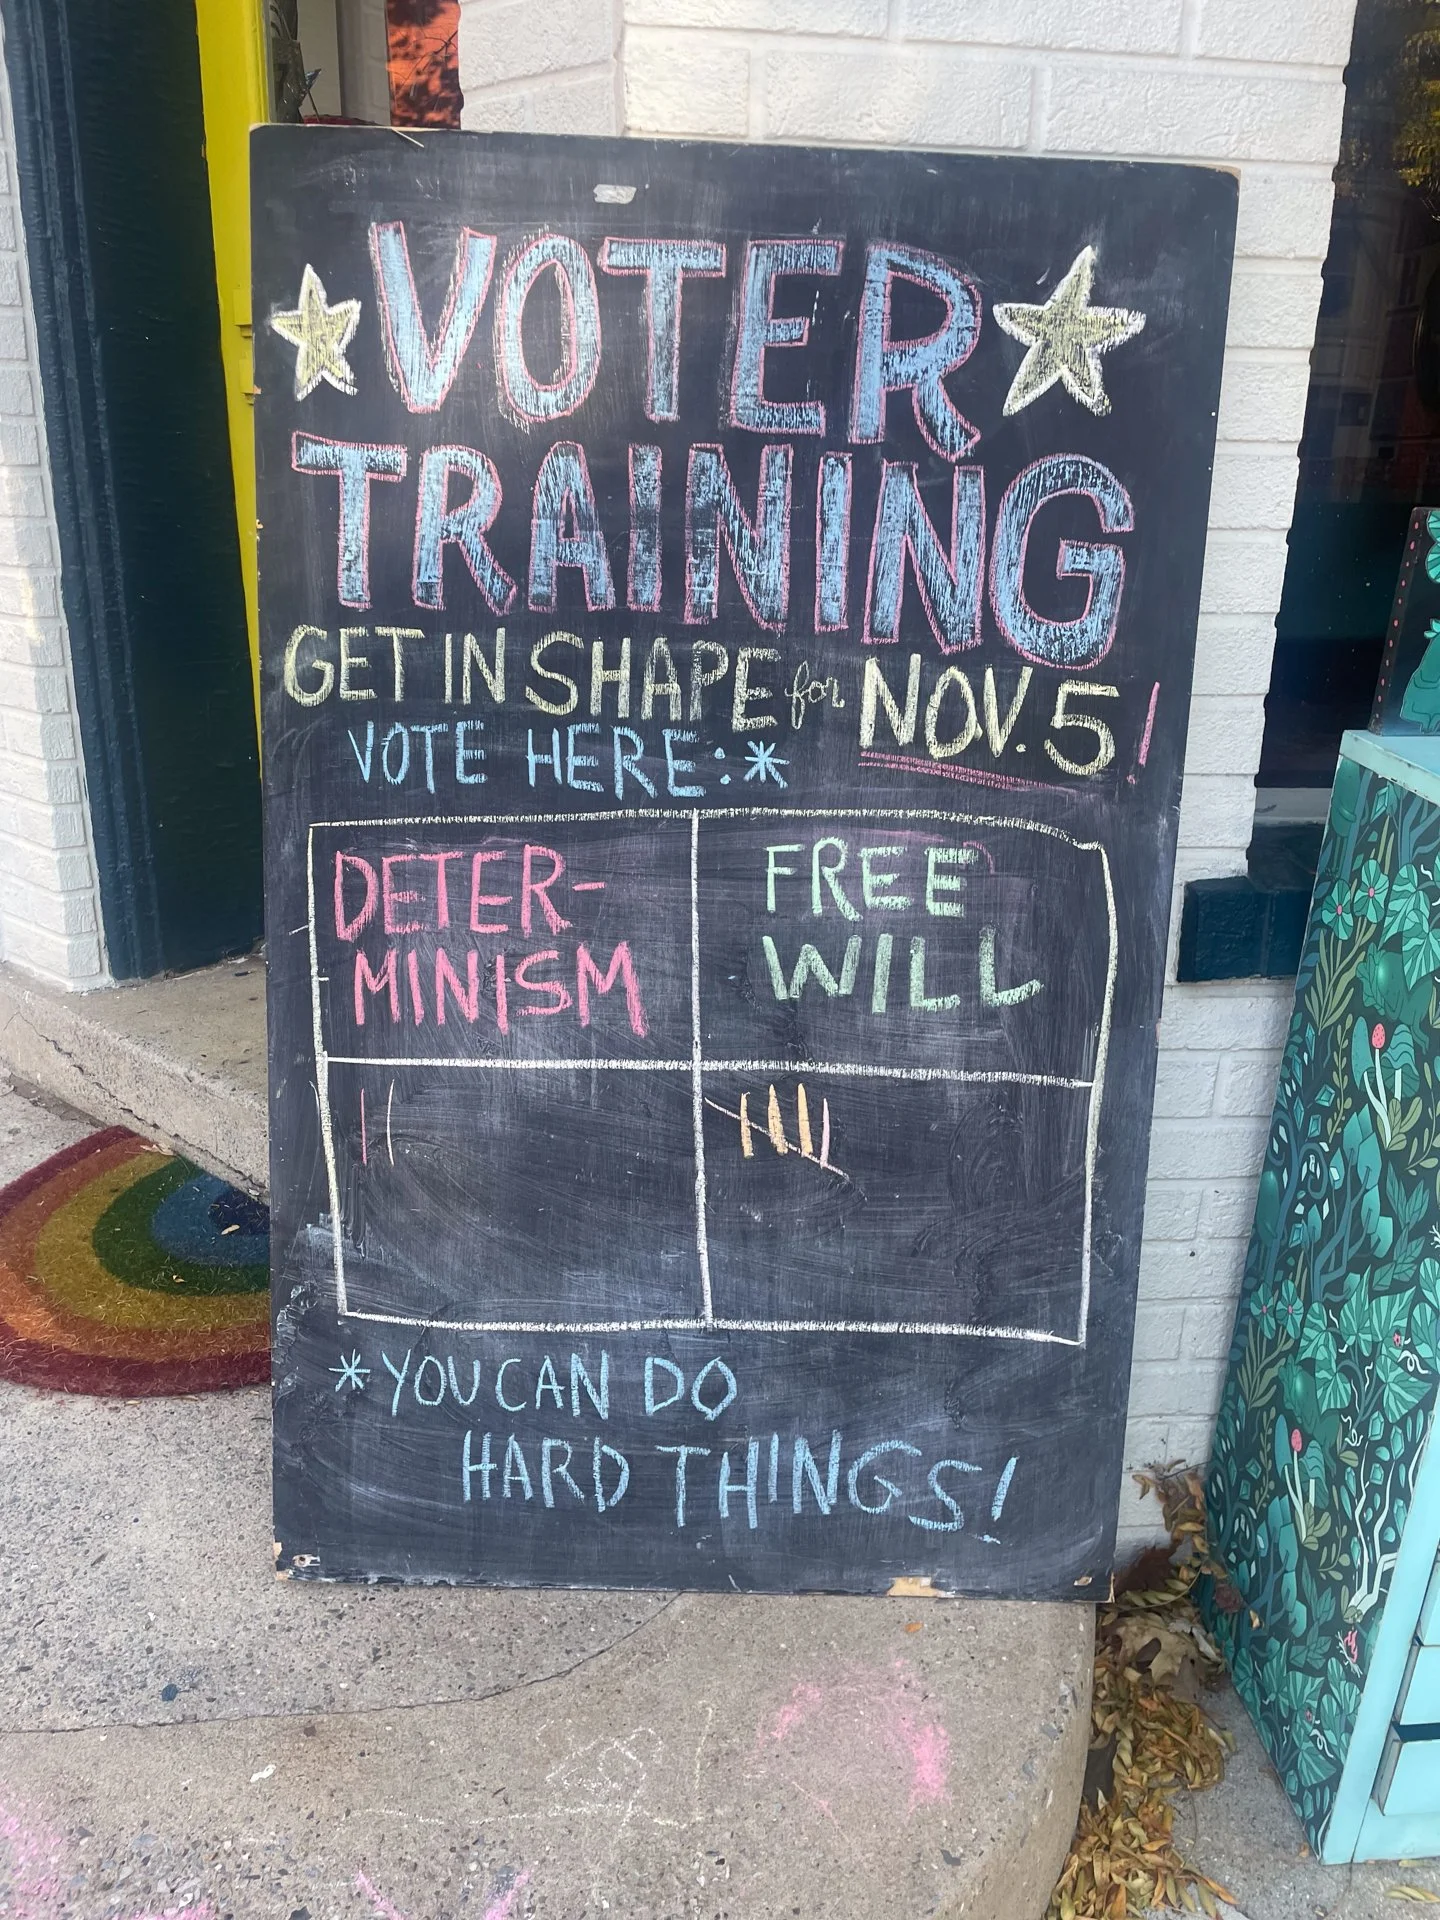 VOTER
TRAINING
GET IN SHAPE for NOV. 5!
VOTE HERE:*
DETER-
MINISM
FREE
WILL
*YOU CAN DO
HARD THINGS!